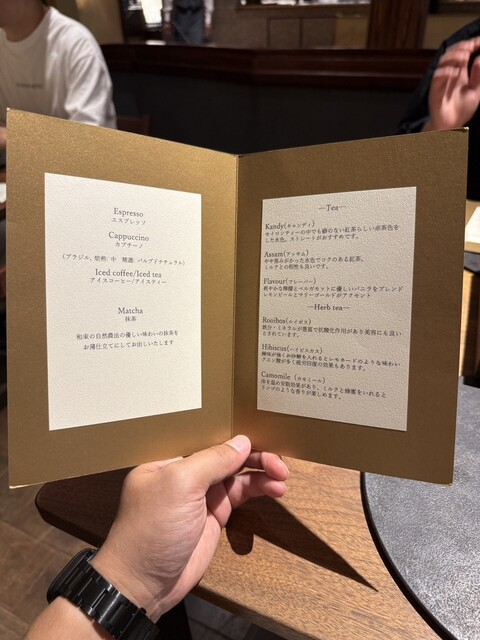 Espresso
エスプレッソ
Cappuccino
カプチーノ
(ブラジル, 焙煎: 中 精選: パルプドナチュラル)
Iced coffee/Iced tea
アイスコーヒー/アイスティー
Matcha
抹茶
和束の自然農法の優しい味わいの抹茶を
お湯仕立てにしてお出しいたします
—Tea—
Kandy(キャンディ)
セイロンティーの中でも癖のない紅茶らしい赤茶色を
した水色。ストレートがおすすめです。
Assam(アッサム)
やや黒みがかった水色でコクのある紅茶。
ミルクとの相性も良いです。
Flavour(フレーバー)
爽やかな檸檬とベルガモットに優しいバニラをブレンド
レモンピールとマリーゴールドがアクセント
—Herb tea—
Rooibos(ルイボス)
鉄分・ミネラルが豊富で抗酸化作用があり美容にも良い
とされています。
Hibiscus(ハイビスカス)
酸味が強くお砂糖を入れるとレモネードのような味わい
クエン酸が多く疲労回復の効果もあります。
Camomile (カモミール)
体を温め安眠効果があり、ミルクと蜂蜜をいれると
リンゴのような香りが楽しめます。